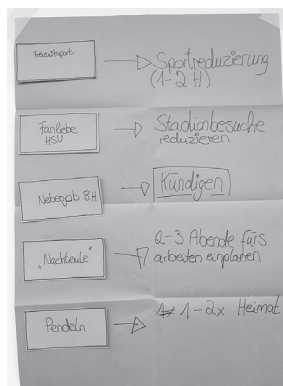 Freizeitsport
Sportreduzierung
(1-2 H)
Fanliebe
HSV
Stadionbesuche
reduzieren
Nebenjob 8H
Kündigen
"Nachteule"
2-3 Abende fürs
arbeiten einplanen
Pendeln
1-2x Heimat